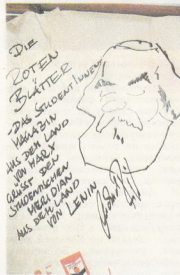 DIE
ROTEN
BLÄTTER
- DAS STUDENTINNEN
MAGAZIN
AUS DEM LAND
VON MARX
GRÜSST DEN
STUDENTISCHEN
MERIDIAN
AUS DEM LAND
VON LENIN